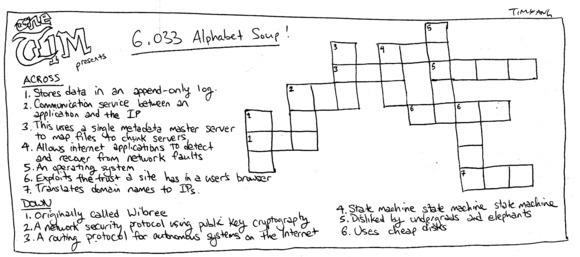 TIMKANG
6.033 Alphabet Soup!
presents
ACROSS
1. Stores data in an append-only log.
2. Communication service between an
application and the IP
3. This uses a single metadata master server
to map files to chunk servers.
4. Allows internet applications to detect
and recover from network faults
5. An operating system
6. Exploits the trust a site has in a user's browser
7. Translates domain names to IPs.
DOWN
1. Originally called Wibree
2. A network security protocol using public key cryptography
3. A routing protocol for autonomous systems on the Internet
4. State machine state machine state machine
5. Disliked by undergrads and elephants
6. Uses cheap disks
5
3 4
3 5
2
6 6
1
1
7